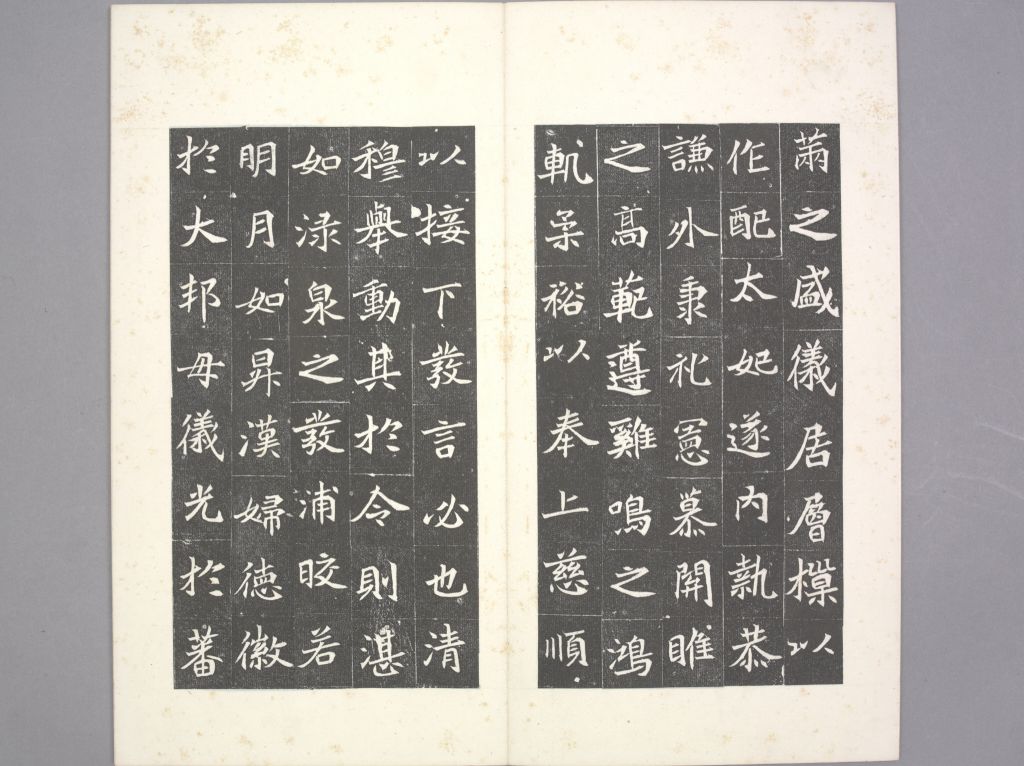 萳之盛儀居層櫟以
作配太妃遂内執恭
謙外秉礼憲慕関雎
之高範遵雞鳴之鴻
軌柔裕以奉上慈順
以接下發言必也清
穆舉動其於令則湛
如渌泉之發浦晈若
明月如昇漢婦徳徽
於大邦母儀光於蕃